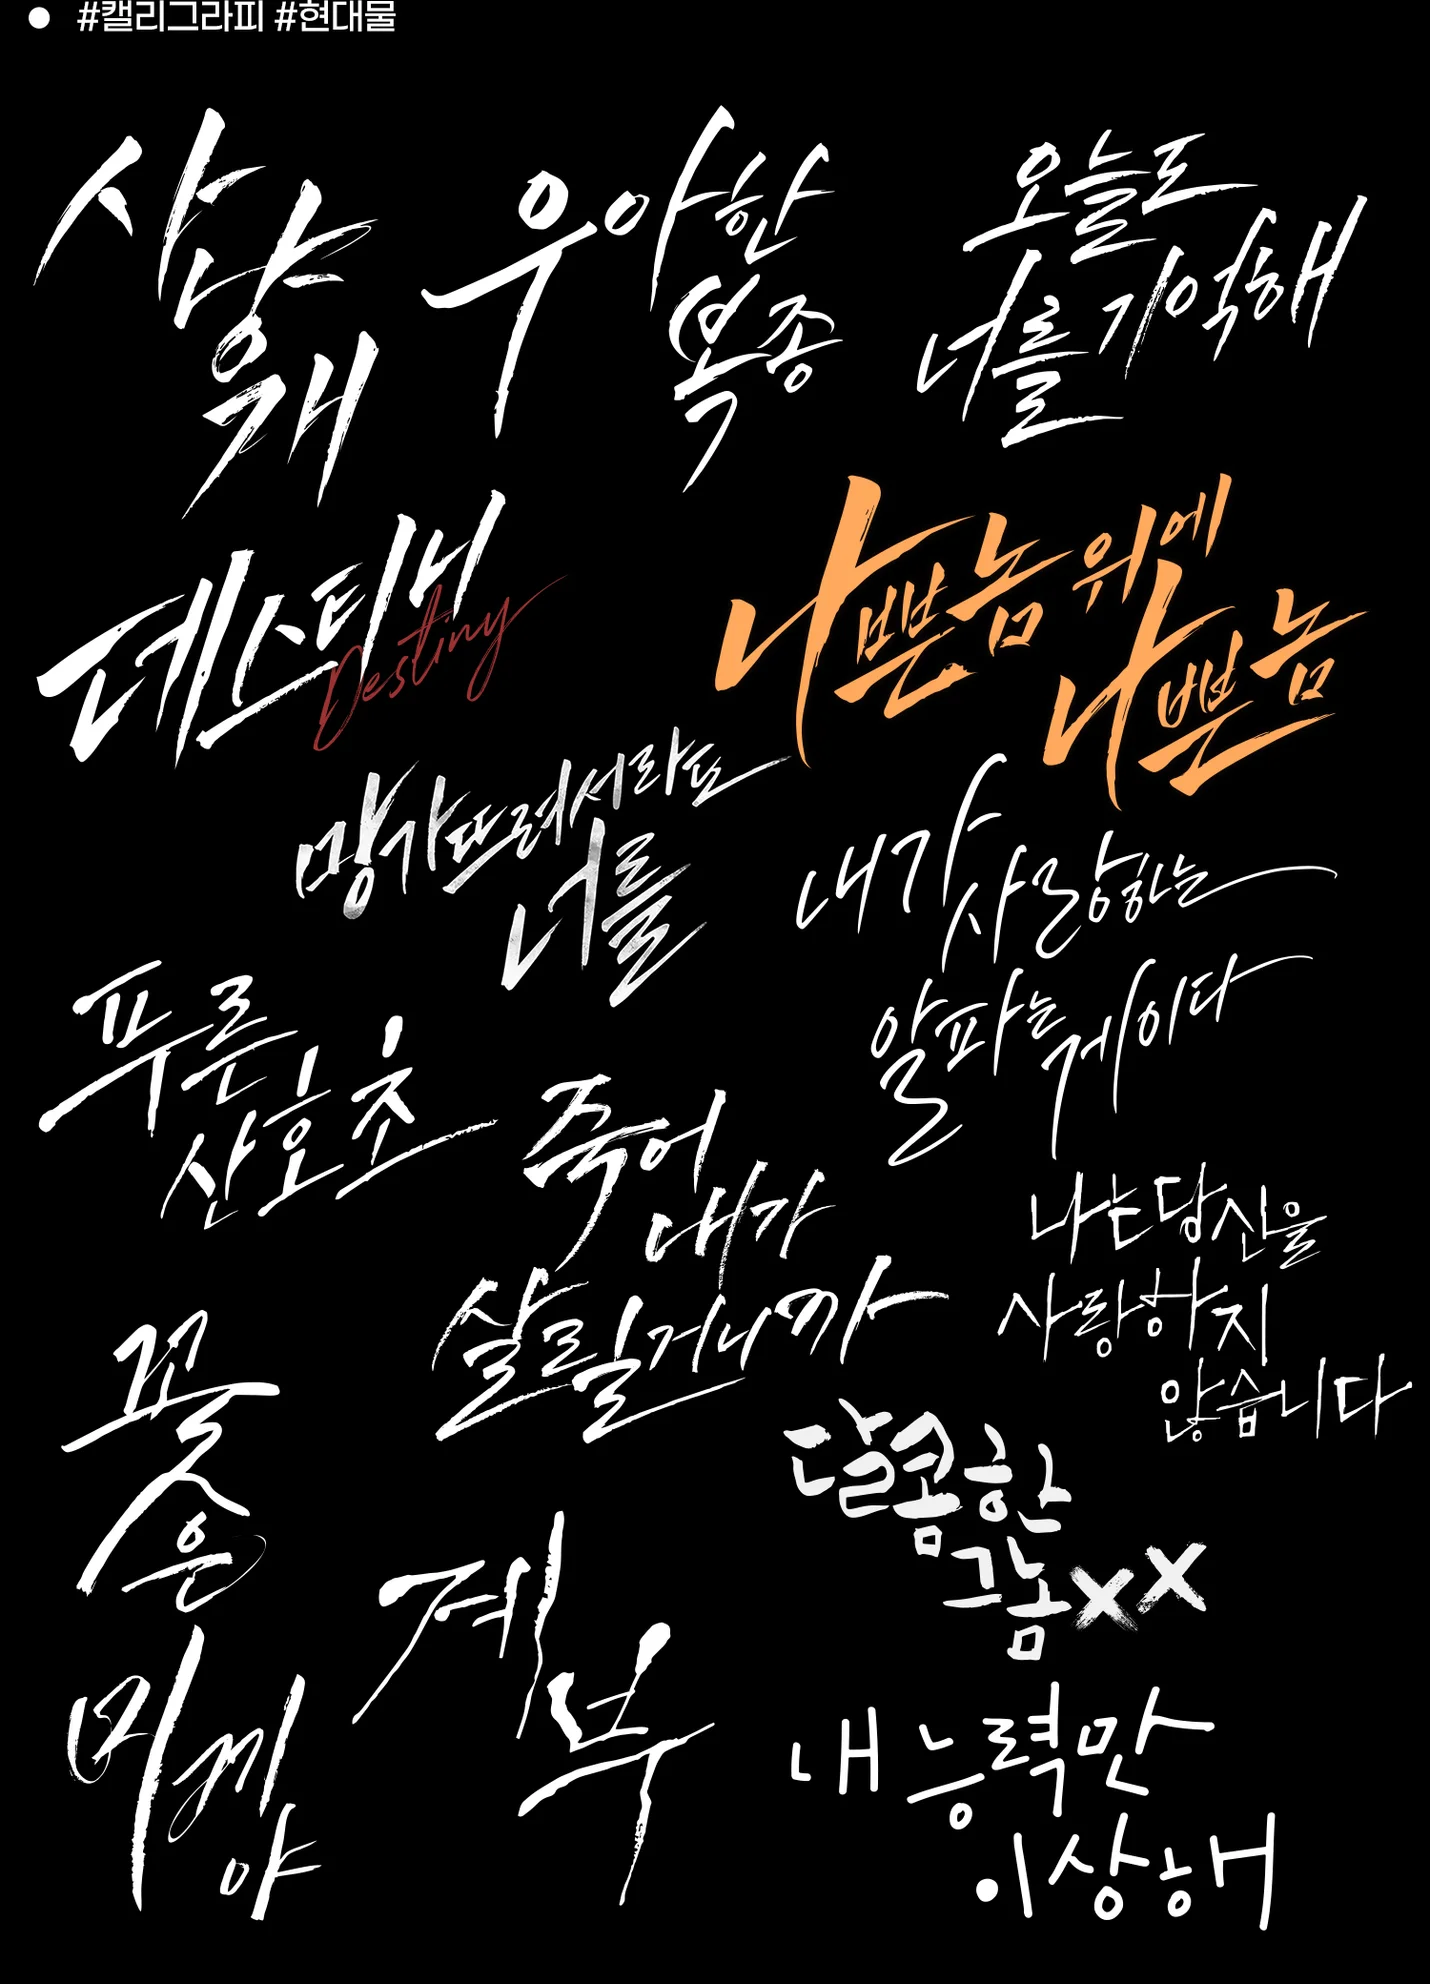 #캘리그라피 #현대물
사냥개
우아한
복종
오늘도
너를 기억해
데스티니
Destiny
나쁜놈 위에
나쁜놈
망가뜨려서라도
너를
내가
사랑하는
알파는
게이다
푸른
산호초
죽어
내가
살릴거니까
나는 당신을
사랑하지
않습니다
꽃
은
미끼야
계부
달콤한
그놈xx
내 능력만
이상해